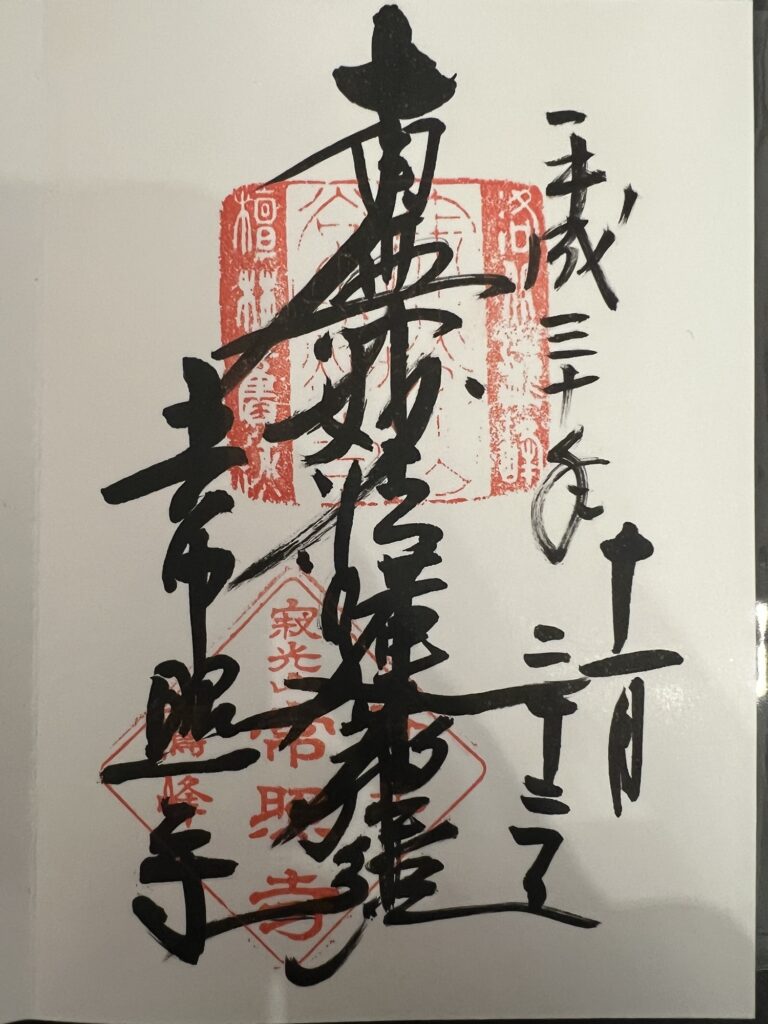 平成三十年
十一月
二十三日
南無妙法蓮華経
常照寺
洛北鷹峰
寂光山
常照寺
鷹峰